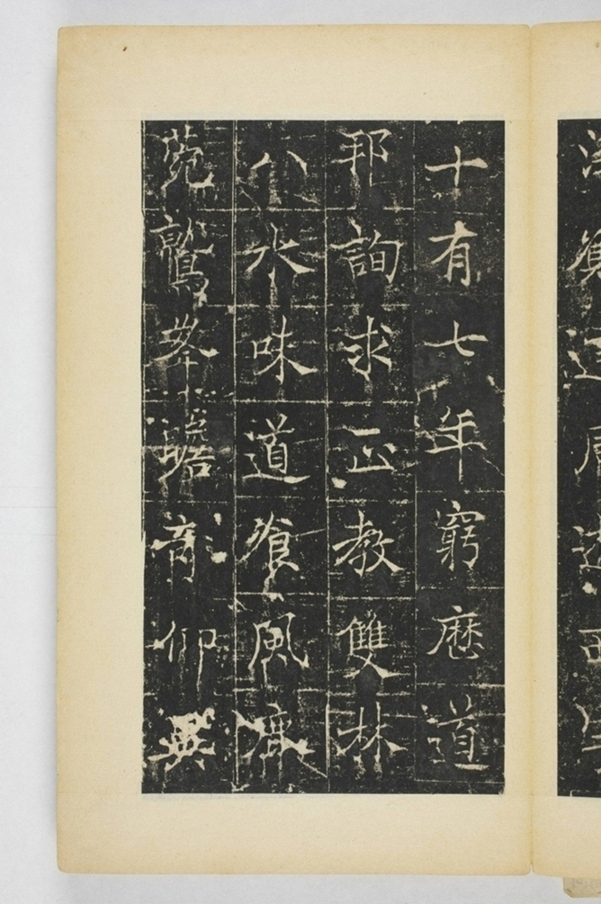 十有七年窮歷道
邦詢求正教雙林
八水味道飡風鹿
菀鷲峯瞻奇仰異